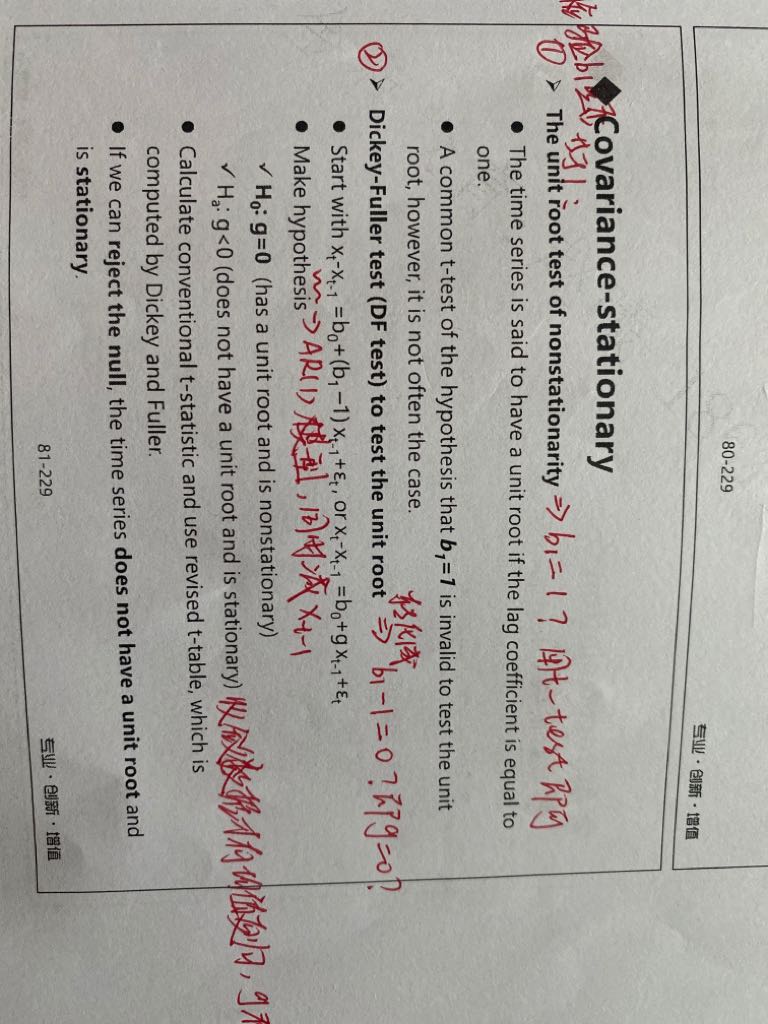 80-229
专业·创新·增值
检验b1是否为1：
◆Covariance-stationary
① ➢ The unit root test of nonstationarity ⇒ b₁=1？用t-test即可
● The time series is said to have a unit root if the lag coefficient is equal to
one.
● A common t-test of the hypothesis that b₁=1 is invalid to test the unit
root, however, it is not often the case.
转化成
② ➢ Dickey-Fuller test (DF test) to test the unit root ⇒ b₁-1=0？即g=0？
● Start with xₜ-xₜ₋₁ =b₀+(b₁-1) xₜ₋₁+εₜ, or xₜ-xₜ₋₁ =b₀+g xₜ₋₁+εₜ
→AR(1)模型，同时减xₜ₋₁
● Make hypothesis
✓ H₀: g=0 (has a unit root and is nonstationary)
✓ Hₐ: g<0 (does not have a unit root and is stationary) 才有均值复归，g
● Calculate conventional t-statistic and use revised t-table, which is
computed by Dickey and Fuller.
● If we can reject the null, the time series does not have a unit root and
is stationary.
81-229
专业·创新·增值